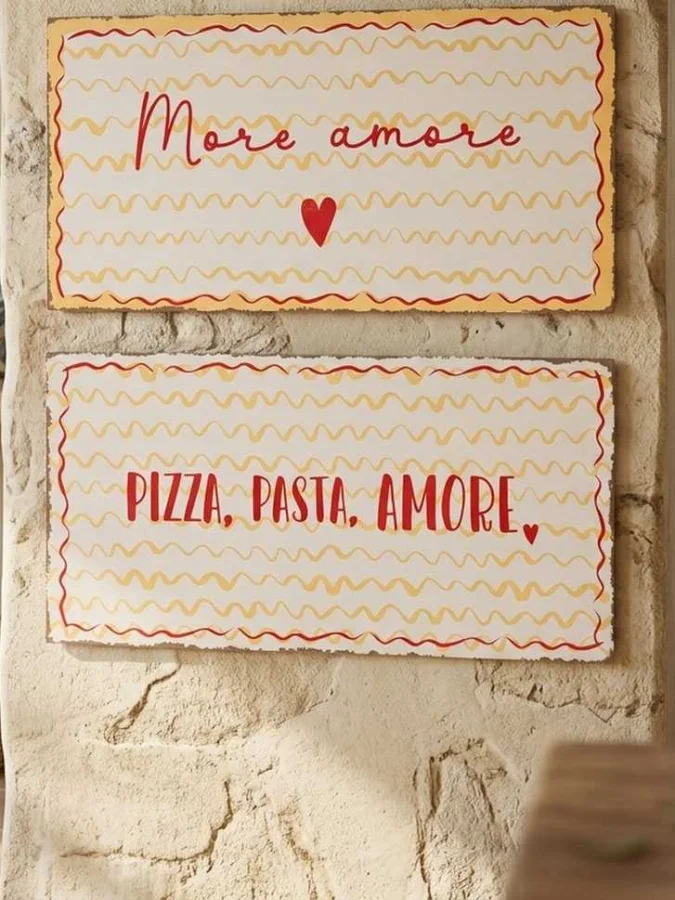 More amore
PIZZA, PASTA, AMORE